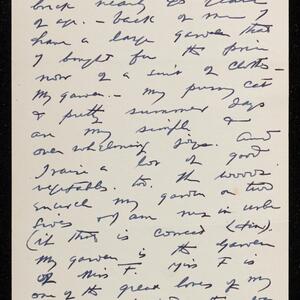 back nearly 25 years
of age. – back of me I
have a large garden that
I bought for the price
now of a suit of clothes –
My garden – my pussy cat
& pretty summer days
are my simple &
over whelming joys. And
I raise a lot of good
vegetables too. The woods
my garden on two
sides & I am in
(if that is correct
my garden is the garden
of Miss F. Miss F is
one of the great loves of my